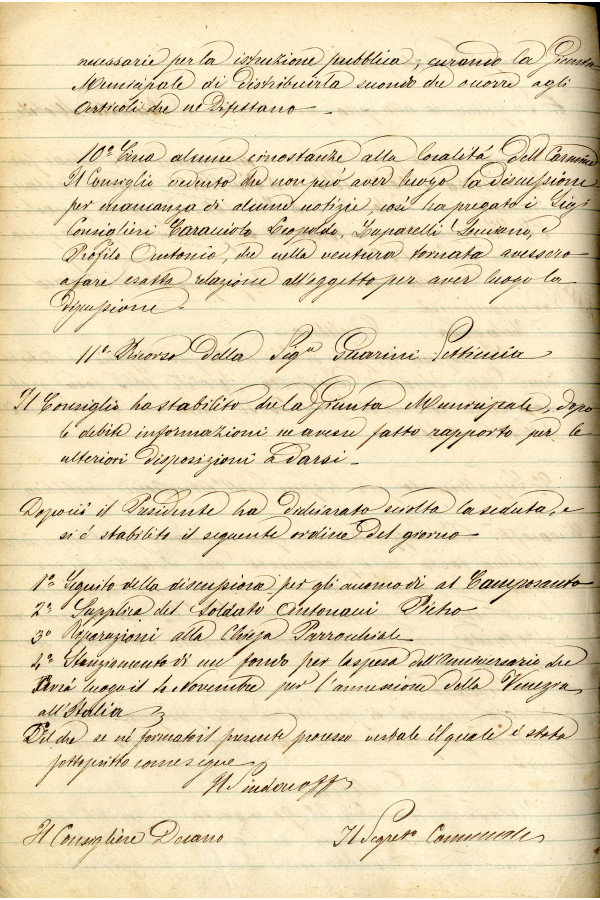 necessarie per la istruzione pubblica, curando la Giunta
Municipale di distribuirla secondo che occorre agli
articoli che ne difettano
10º Circa alcune circostanze alla località del Carmine
Il Consiglio veduto che non può aver luogo la discussione
per mancanza di alcune notizie così ha pregato i Sigi
Consiglieri Caracciolo Leopoldo, Luparelli Luciano, e
Profilo Antonio, che nella ventura tornata avessero
a fare esatta relazione all'oggetto per aver luogo la
discussione
11º Ricorso della Sigª Guarini Petticcia
Il Consiglio ha stabilito che la Giunta Municipale, dopo
le debite informazioni ne avesse fatto rapporto per le
ulteriori disposizioni a darsi
Dopociò il Presidente ha dichiarato sciolta la seduta, e
si è stabilito il seguente ordine del giorno
1º Seguito della discussione per gli accomodi al Camposanto
2º Supplica del Soldato Antonacci Pietro
3º Riparazioni alla Chiesa Parrocchiale
4º Stanziamento di un fondo per la spesa dell'Anniversario che
avrà luogo il 4 Novembre per l'annessione della Venezia
all'Italia
Del che se n'è formato il presente processo verbale il quale è stato
sottoscritto come segue
Il Sindaco ff
Il Consigliere Decano Il Segretº Comunale